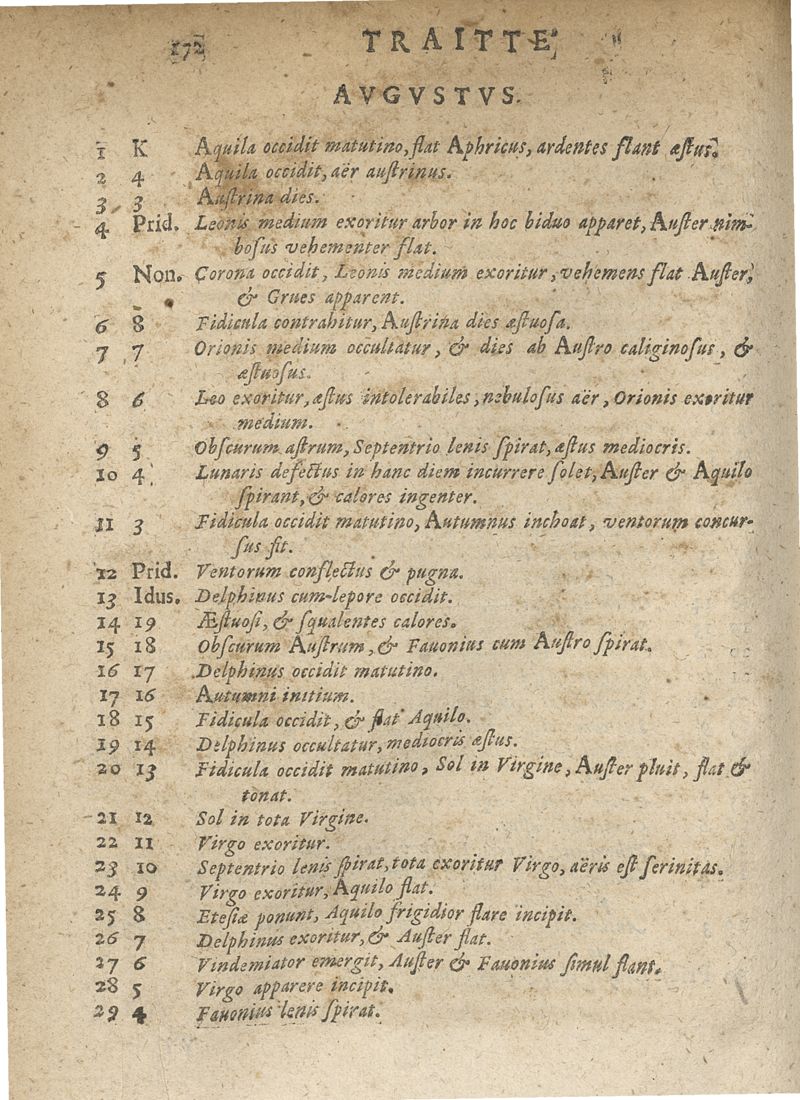 172 TRAITTE'
AVGVSTVS.
1 K Aquila occidit matutino, flat Aphricus, ardentes flant æstus.
2 4 Aquila occidit, aër austrinus.
3 3 Austrina dies.
4 Prid. Leonis medium exoritur arbor in hoc biduo apparet, Auster nim-
bosus vehementer flat.
5 Non. Corona occidit, Leonis medium exoritur, vehemens flat Auster,
& Grues apparent.
6 8 Fidicula contrahitur, Austrina dies æstuosa.
7 7 Orionis medium occultatur, & dies ab Austro caliginosus, &
æstuosus.
8 6 Leo exoritur, æstus intolerabiles, nebulosus aër, Orionis exoritur
medium.
9 5 Obscurum astrum, Septentrio lenis spirat, æstus mediocris.
10 4 Lunaris defectus in hanc diem incurrere solet, Auster & Aquilo
spirant, & calores ingenter.
11 3 Fidicula occidit matutino, Autumnus inchoat, ventorum concur-
sus fit.
12 Prid. Ventorum conflectus & pugna.
13 Idus. Delphinus cum-lepore occidit.
14 19 Æstuosi, & squalentes calores.
15 18 Obscurum Austrum, & Fauonius cum Austro spirat.
16 17 Delphinus occidit matutino.
17 16 Autumni initium.
18 15 Fidicula occidit, & flat Aquilo.
19 14 Delphinus occultatur, mediocris æstus.
20 13 Fidicula occidit matutino, Sol in Virgine, Auster pluit, flat &
tonat.
21 12 Sol in tota Virgine.
22 11 Virgo exoritur.
23 10 Septentrio lenis spirat, tota exoritur Virgo, aëris est serinitas.
24 9 Virgo exoritur, Aquilo flat.
25 8 Etesiæ ponunt, Aquilo frigidior flare incipit.
26 7 Delphinus exoritur, & Auster flat.
27 6 Vindemiator emergit, Auster & Fauonius simul flant.
28 5 Virgo apparere incipit.
29 4 Fauonius lenis spirat.